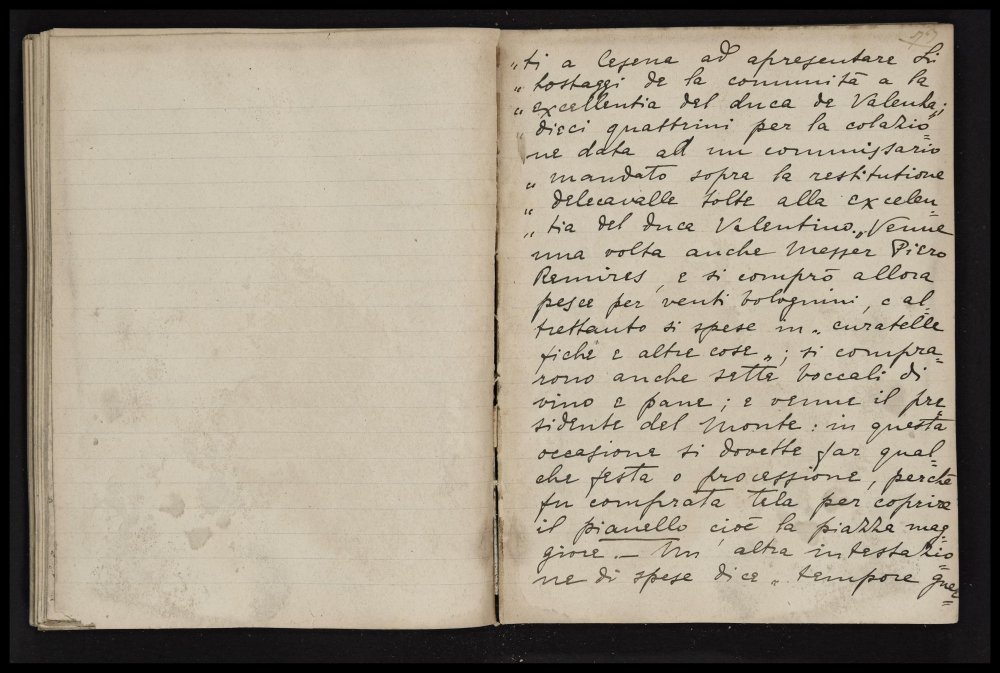 „ti a Cesena ad apresentare Li
„ hostaggi de la communità a la
„ excellentia del duca de Valenza;
„ dieci quattrini per la colazio=
ne data ad un commissario
„ mandato sopra la restitutione
„ delecavalle tolte alla excelen=
„ tia del duca Valentino.„ Venne
una volta anche Messer Piero
Remires, e si comprò allora
pesce per venti bolognini, e al=
trettanto si spese in „ curatelle
fiche e altre cose „; si compra=
rono anche sette boccali di
vino e pane; e venne il pre
sidente del Monte: in questa
occasione si dovette far qual=
che festa o processione, perchè
fu comprata tela per coprire
il pianello cioè la piazza mag=
giore. — Un' altra intestazio=
ne di spese dice „ tempore guer=